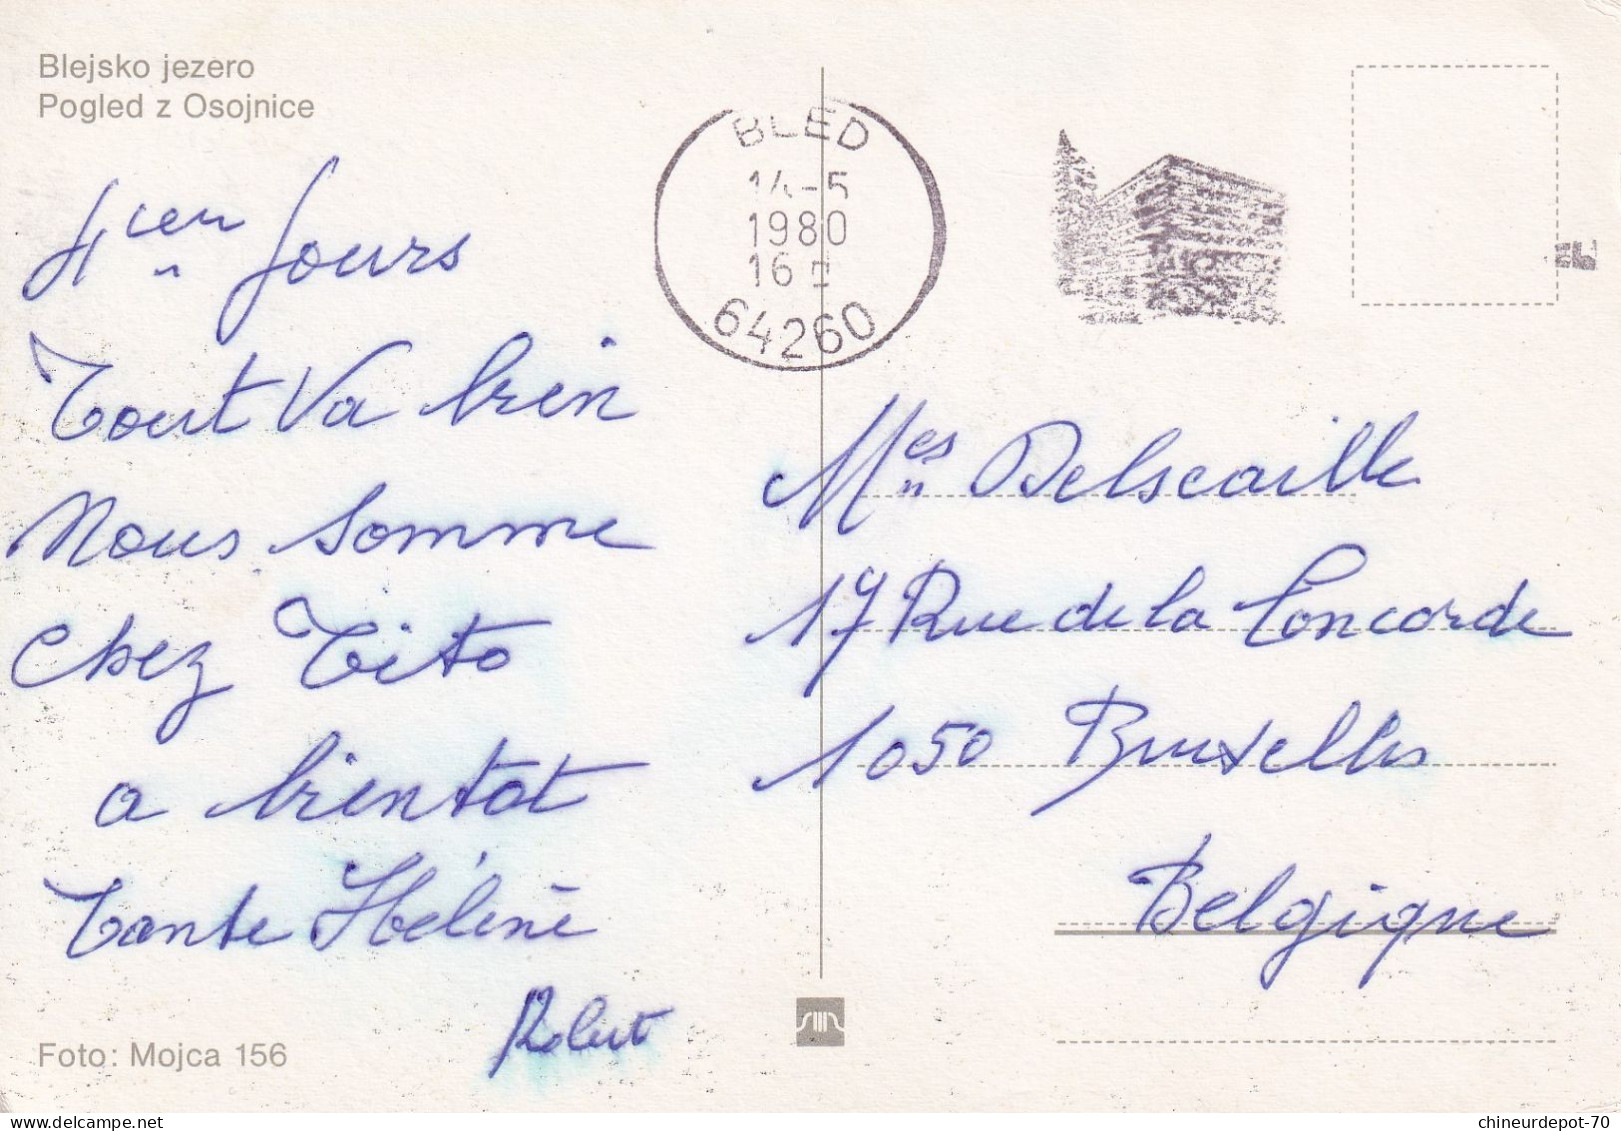 Blejsko jezero
Pogled z Osojnice
4ien Jours
Tout Va bien
Nous Somme
Chez Tito
a bientot
Tante Hélène
Robert
Foto: Mojca 156
BLED
14-5
1980
16
64260
Mes Delscaille
17 Rue de la Concorde
1050 Bruxelles
Belgique
chineurdepot-70